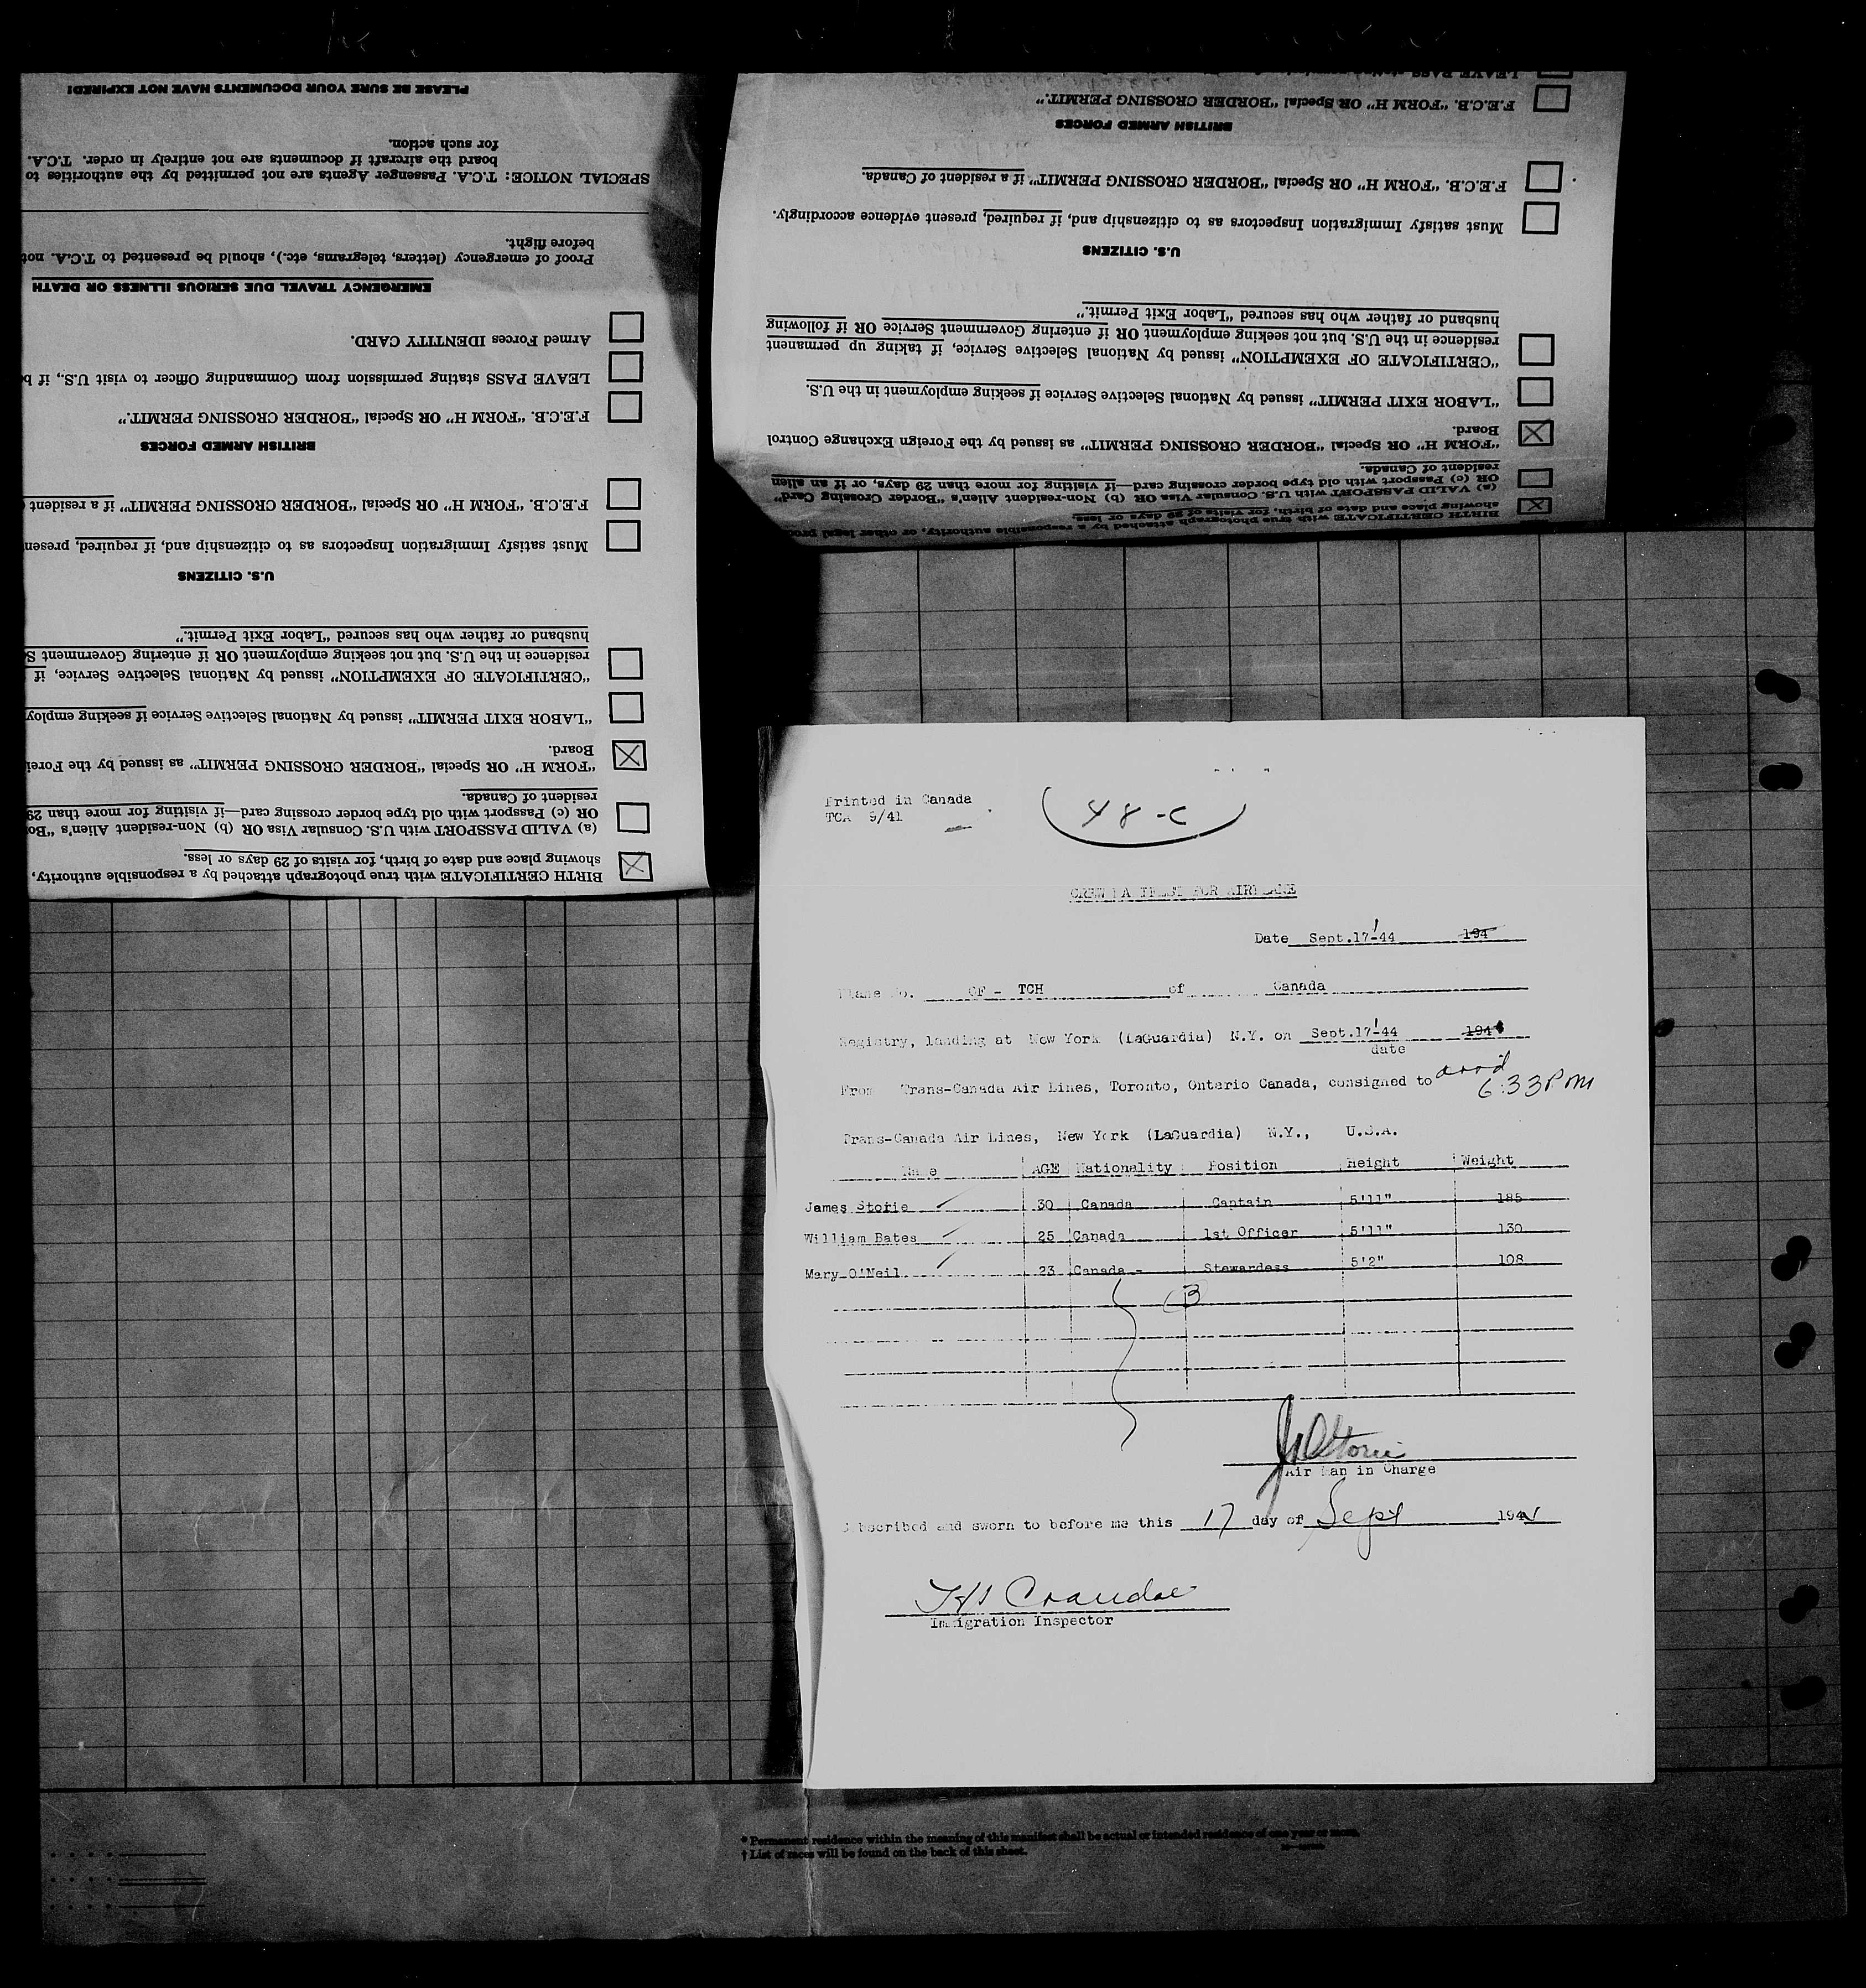 PLEASE BE SURE YOUR DOCUMENTS HAVE NOT EXPIRED!
for such action.
board the aircraft if documents are not entirely in order. T.C.A.
SPECIAL NOTICE: T.C.A. Passenger Agents are not permitted by the authorities to
before flight.
Proof of emergency (letters, telegrams, etc.), should be presented to T.C.A. not
EMERGENCY TRAVEL DUE SERIOUS ILLNESS OR DEATH
Armed Forces IDENTITY CARD.
LEAVE PASS stating permission from Commanding Officer to visit U.S., if
F.E.C.B. "FORM H" OR Special "BORDER CROSSING PERMIT."
BRITISH ARMED FORCES
F.E.C.B. "FORM H" OR Special "BORDER CROSSING PERMIT" if a resident
Must satisfy Immigration Inspectors as to citizenship and, if required, presen
U.S. CITIZENS
husband or father who has secured "Labor Exit Permit."
residence in the U.S. but not seeking employment OR if entering Government S
"CERTIFICATE OF EXEMPTION" issued by National Selective Service, if
"LABOR EXIT PERMIT" issued by National Selective Service if seeking employ
Board.
"FORM H" OR Special "BORDER CROSSING PERMIT" as issued by the Forei
resident of Canada.
OR (c) Passport with old type border crossing card—if visiting for more than 29
(a) VALID PASSPORT with U.S. Consular Visa OR (b) Non-resident Alien's "Bo
showing place and date of birth, for visits of 29 days or less.
BIRTH CERTIFICATE with true photograph attached by a responsible authority,
LEAVE PASS
F.E.C.B. "FORM H" OR Special "BORDER CROSSING PERMIT."
BRITISH ARMED FORCES
F.E.C.B. "FORM H" OR Special "BORDER CROSSING PERMIT" if a resident of Canada.
Must satisfy Immigration Inspectors as to citizenship and, if required, present evidence accordingly.
U.S. CITIZENS
husband or father who has secured "Labor Exit Permit."
residence in the U.S. but not seeking employment OR if entering Government Service OR if following
"CERTIFICATE OF EXEMPTION" issued by National Selective Service, if taking up permanent
"LABOR EXIT PERMIT" issued by National Selective Service if seeking employment in the U.S.
Board.
"FORM H" OR Special "BORDER CROSSING PERMIT" as issued by the Foreign Exchange Control
resident of Canada.
OR (c) Passport with old type border crossing card—if visiting for more than 29 days, or if an alien
(a) VALID PASSPORT with U.S. Consular Visa OR (b) Non-resident Alien's "Border Crossing Card"
showing place and date of birth, for visits of 29 days or less.
BIRTH CERTIFICATE with true photograph attached by a responsible authority, or other legal proof
Printed in Canada
TCA 9/41
48-C
CREW MANIFEST FOR AIRPLANE
Date Sept.17-44 194
Plane No. CF - TCH of Canada
Registry, landing at New York (LaGuardia) N.Y. on Sept.17-44 194
date
From Trans-Canada Air Lines, Toronto, Ontario Canada, consigned to arr'd
6:33 PM
Trans-Canada Air Lines, New York (LaGuardia) N.Y., U.S.A.
Name AGE Nationality Position Height Weight
James Storie 30 Canada Captain 5'11" 185
William Bates 25 Canada 1st Officer 5'11" 130
Mary O'Neil 23 Canada - Stewardess 5'2" 108
3
Storie
Air Man in Charge
Subscribed and sworn to before me this 17 day of Sept 194
Immigration Inspector
* Permanent residence within the meaning of this manifest shall be actual or intended residence of one year or more.
† List of races will be found on the back of this sheet.